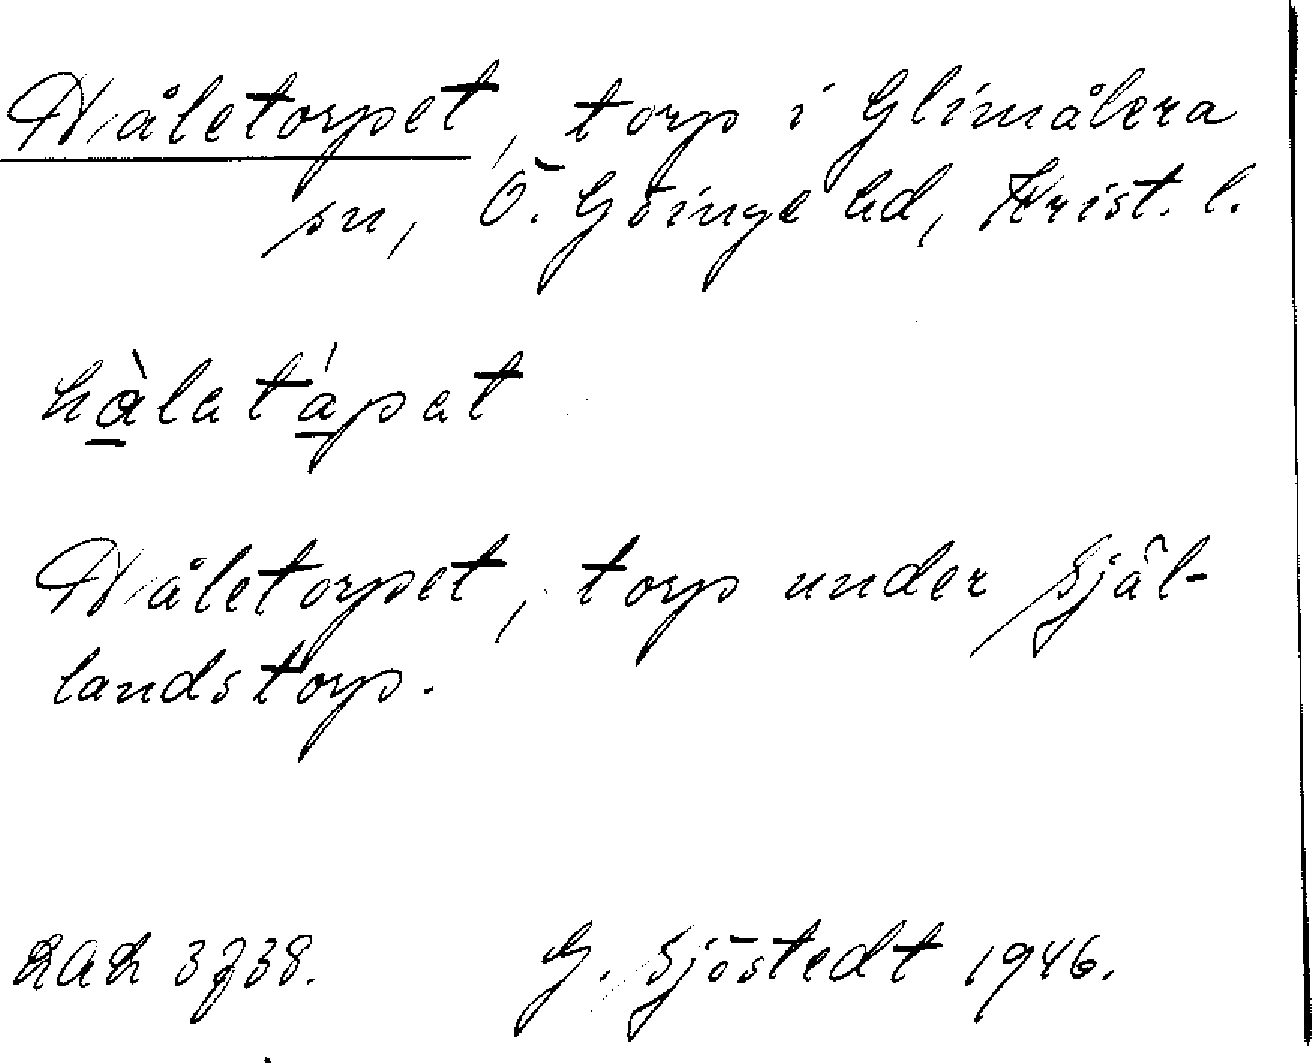 Håletorpet, torp i Glimåkra
sn, Ö. Göinge hd, Krist. l.
hàlatápat
Håletorpet, torp under Själ-
landstorp.
RAÄ 3738.    G. Sjöstedt 1946.